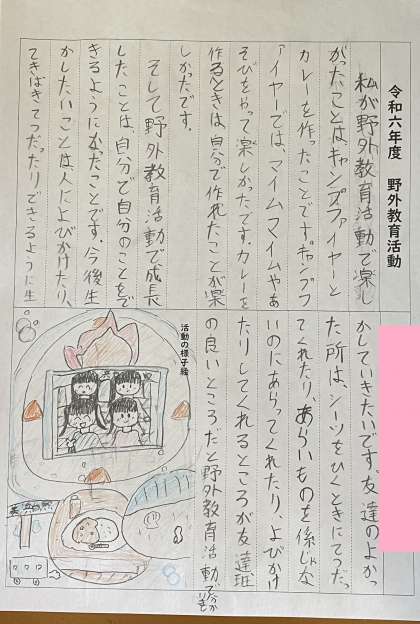 令和六年度　野外教育活動
私が野外教育活動で楽し
がったことは、キャンプファイヤーと
カレーを作ったことです。キャンプフ
ァイヤーでは、マイムマイムやあ
そびをやって楽しかったです。カレーを
作るときは、自分で作れたことが楽
しかったです。
そして野外教育活動で成長
したことは、自分で自分のことをで
きるようになったことです。今後生
かしたいことは、人によびかけたり、
てきぱきてつだったりできるように生
かしていきたいです。友達のよかっ
た所は、シーツをひくときにてつだっ
てくれたり、あらいものを係じゃな
いのにあらってくれたり、よびかけ
たりしてくれるところが友達班
の良いところだと野外教育活動で分か
活動の様子絵